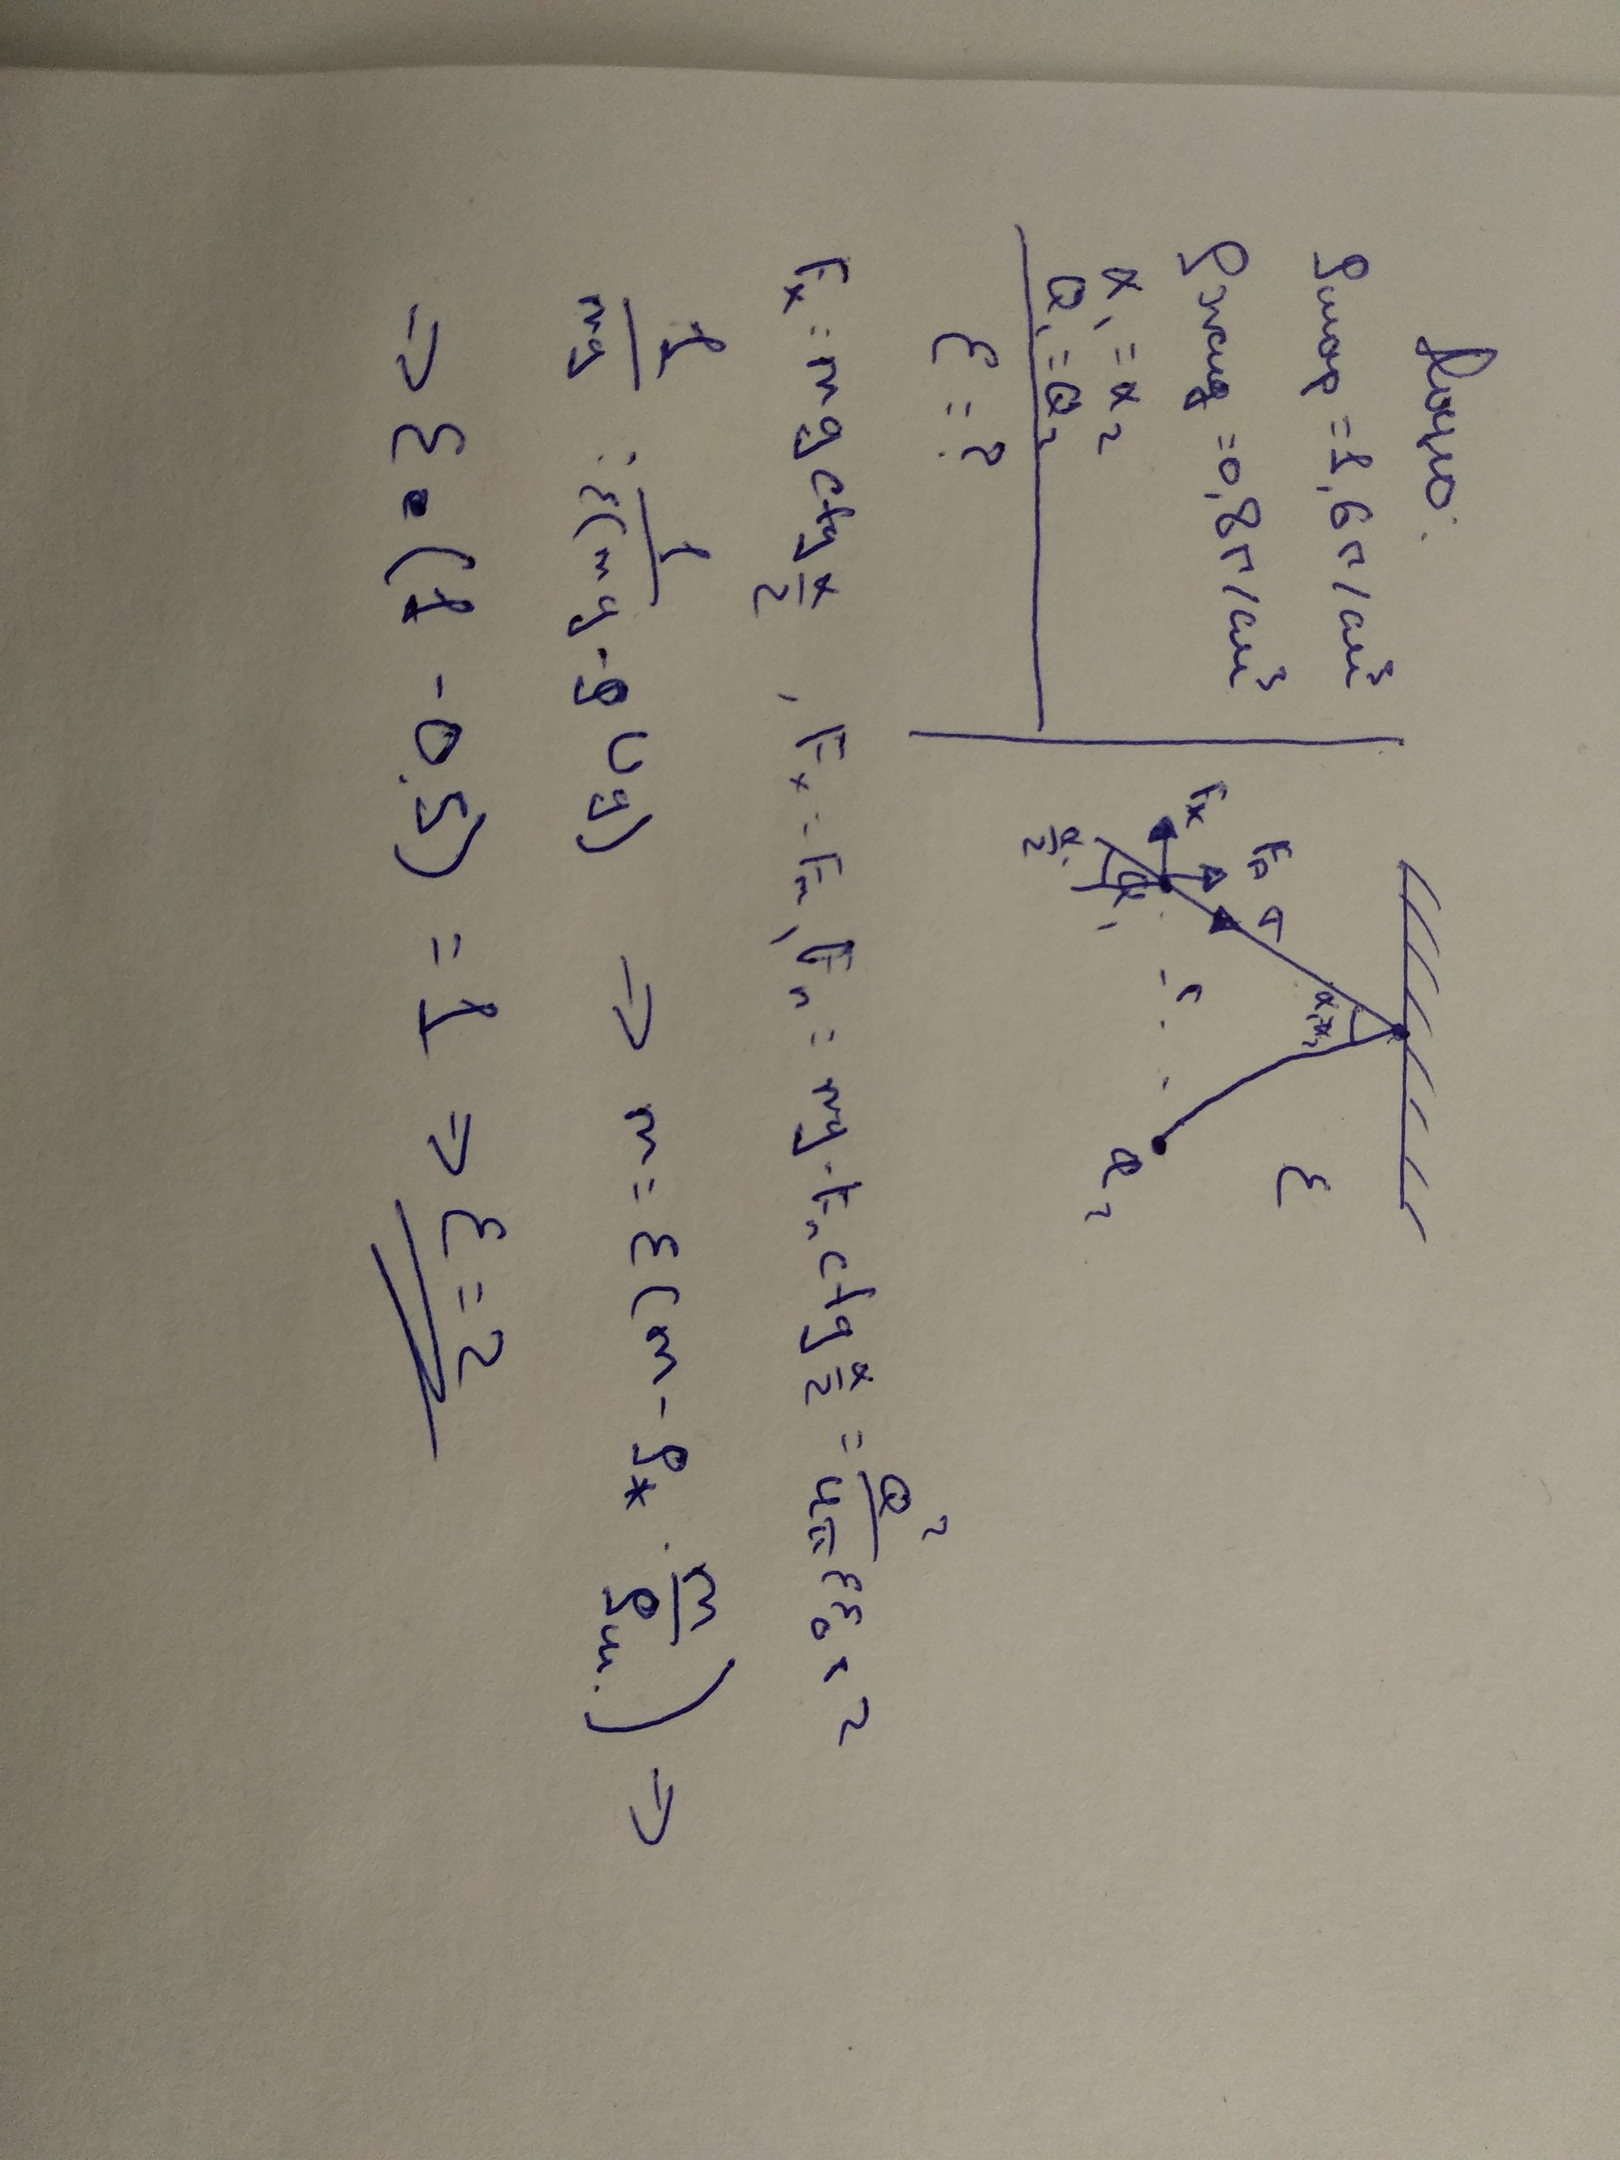 Дано:
ρшар = 1,6 г/см³
ρжид = 0,8 г/см³
α₁ = α₂
Q₁ = Q₂
ε = ?
Fк Fп T α₁,α₂ ε
α/2 Q₁ r Q₂
Fк = mg ctg α/2 , Fк = Fm, Fп = mg - Fп ctg α/2 = Q² / 4πεε₀x²
1/mg : 1/ε(mg - ρVg) ⇒ m = ε(m - ρж · m/ρш) ⇒
⇒ ε · (1 - 0.5) = 1 ⇒ ε = 2